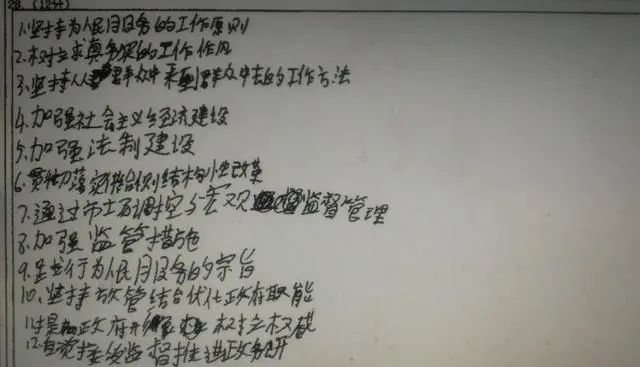 28. (12分)
1.坚持为人民服务的工作原则
2.树立求真务实的工作作风
3.坚持从群众中来到群众中去的工作方法
4.加强社会主义经济建设
5.加强法制建设
6.贯彻落实供给侧结构性改革
7.通过市场调控与宏观监督管理
8.加强监管措施
9.履行为人民服务的宗旨
10.坚持放管结合优化政府职能
11.提高政府 树立权威
12.自觉接受监督推进政务公开